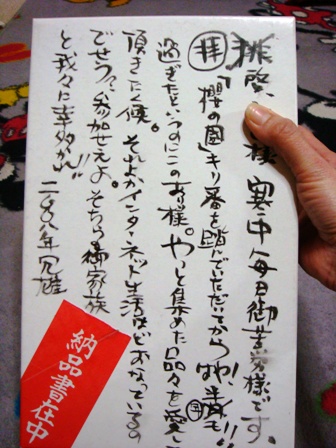 拝啓、　様 寒中毎日御苦労様です。
拝 「櫻の国」キリ番を踏んでいただいてから
過ぎたというのにこのあり様。やっと集めた品々を愛し
頂きたく候。それよかインターネット生活はどおなっているの
でせう?参加せえよ。そちら御家族
と我々に幸多かれ!!
二〇〇八年
納品書在中